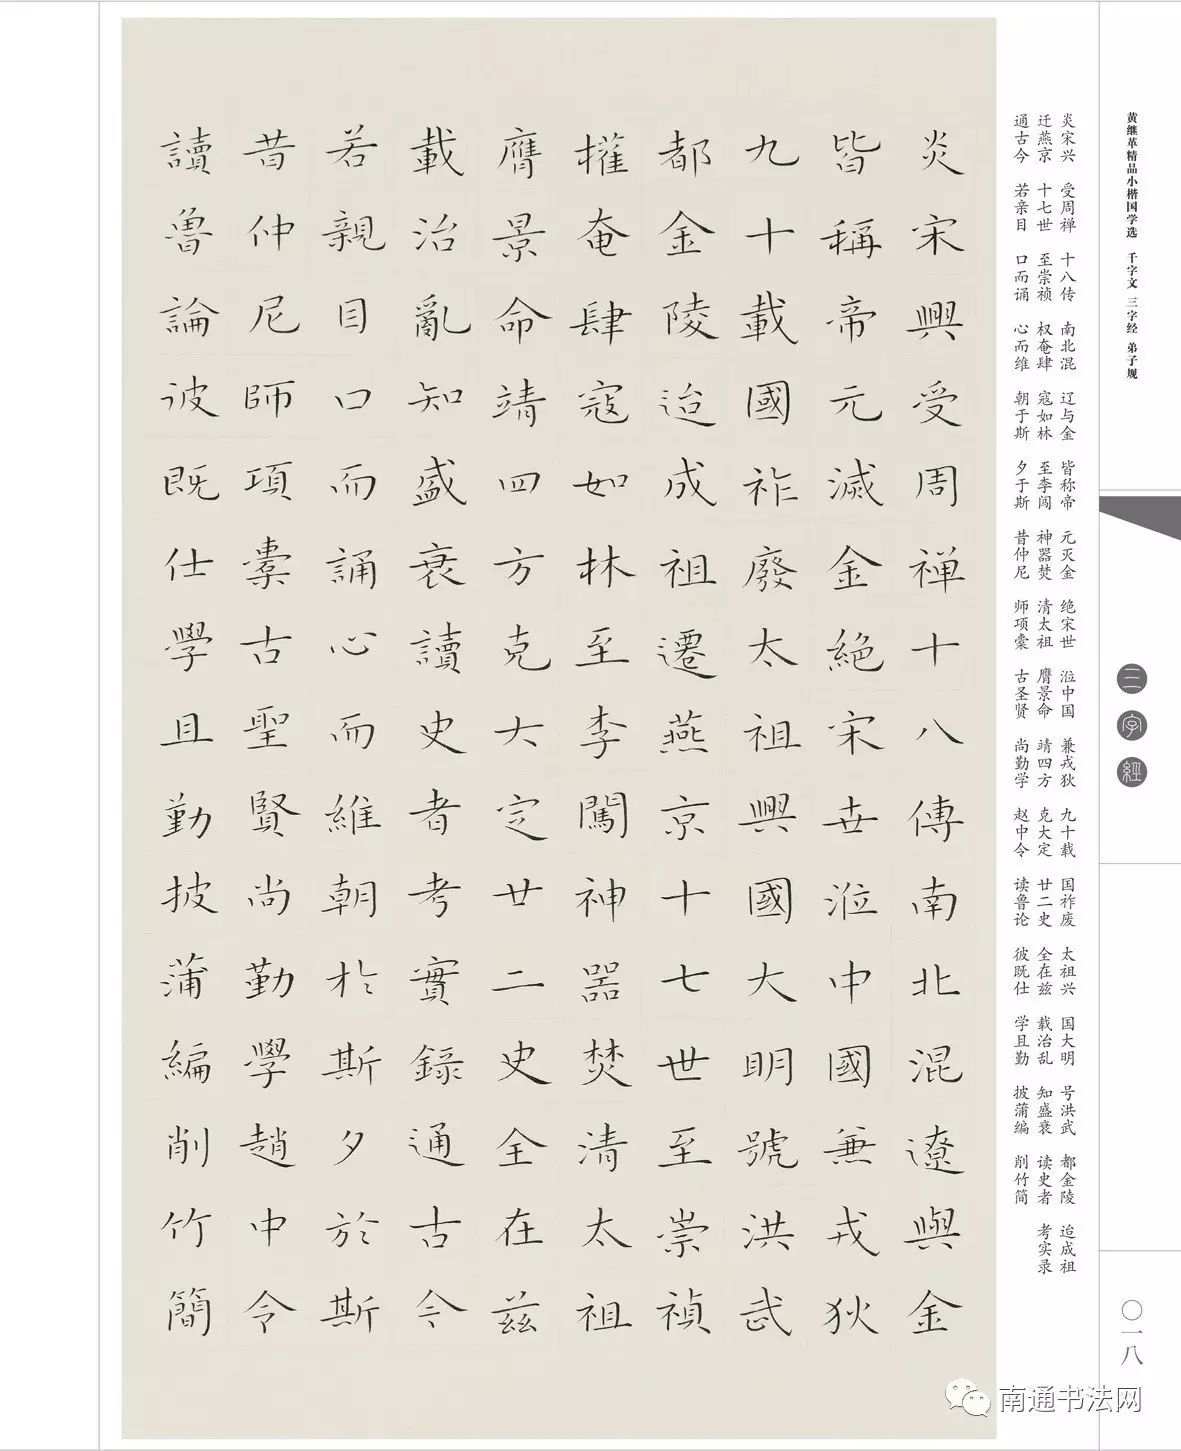 黄继革精品小楷国学选 千字文 三字经 弟子规
三字經
〇一八
炎宋兴 受周禅 十八传 南北混 辽与金 皆称帝 元灭金 绝宋世 涖中国 兼戎狄 九十载 国祚废 太祖兴 国大明 号洪武 都金陵 迨成祖
迁燕京 十七世 至崇祯 权奄肆 寇如林 至李闯 神器焚 清太祖 膺景命 靖四方 克大定 廿二史 全在兹 载治乱 知盛衰 读史者 考实录
通古今 若亲目 口而诵 心而维 朝于斯 夕于斯 昔仲尼 师项橐 古圣贤 尚勤学 赵中令 读鲁论 彼既仕 学且勤 披蒲编 削竹简
炎宋興受周禅十八傳南北混遼與金
皆稱帝元滅金絕宋世涖中國兼戎狄
九十載國祚廢太祖興國大明號洪武
都金陵迨成祖遷燕京十七世至崇禎
權奄肆寇如林至李闖神器焚清太祖
膺景命靖四方克大定廿二史全在兹
載治亂知盛衰讀史者考實錄通古今
若親目口而誦心而維朝於斯夕於斯
昔仲尼師項橐古聖賢尚勤學趙中令
讀魯論彼既仕學且勤披蒲編削竹簡
南通书法网